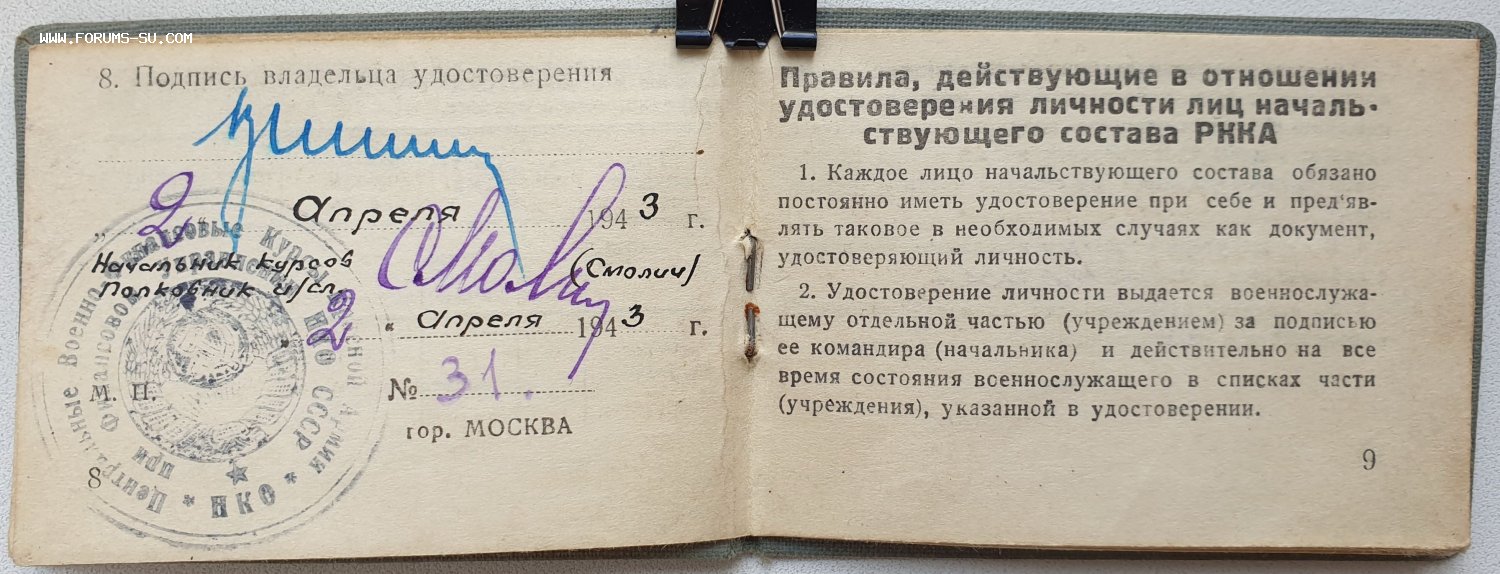 WWW.FORUMS-SU.COM
8. Подпись владельца удостоверения
„2" Апреля 1943 г.
Начальник курсов
Полковник и/сл. (Смолич)
„2" Апреля 1943 г.
М. П.
№ 31.
гор. МОСКВА
8
Центральные Военно-Финансовые Курсы Красной Армии
при Финансовом Управлении НКО СССР
* НКО *
Правила, действующие в отношении
удостоверения личности лиц началь-
ствующего состава РККА
1. Каждое лицо начальствующего состава обязано
постоянно иметь удостоверение при себе и пред'яв-
лять таковое в необходимых случаях как документ,
удостоверяющий личность.
2. Удостоверение личности выдается военнослужа-
щему отдельной частью (учреждением) за подписью
ее командира (начальника) и действительно на все
время состояния военнослужащего в списках части
(учреждения), указанной в удостоверении.
9